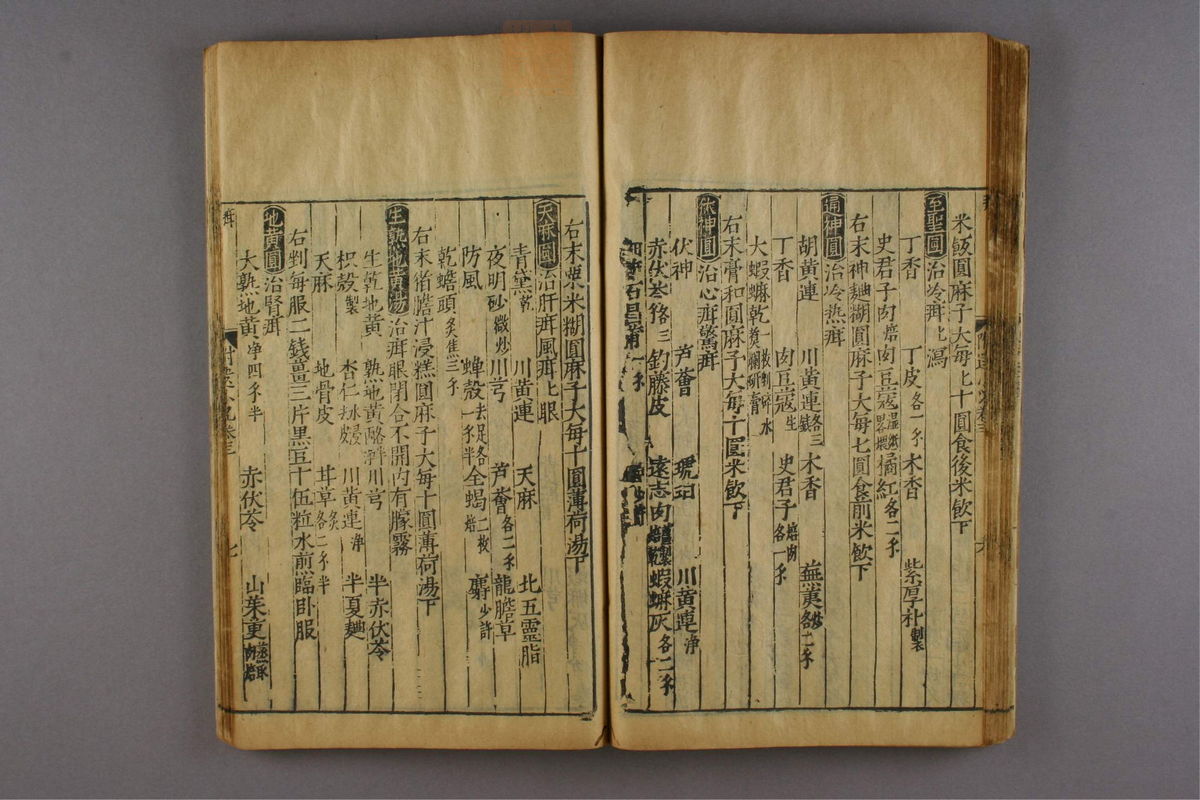 米飯圓麻子大每七十圓食後米飲下
至聖圓 治冷疳七瀉
丁香 丁皮各一錢 木香 紫厚朴製
史君子肉焙 肉豆蔻 橘紅各二錢
右末神麯糊圓麻子大每七圓食前米飲下
通神圓 治冷熱疳
胡黃連 川黃連各三錢 木香 蕪荑
丁香 肉豆蔻生 史君子焙肉各一錢
大蝦蟆乾 水
右末膏和圓麻子大每十圓米飲下
茯神圓 治心疳驚疳
伏神 芦薈 琥珀 川黃連淨
赤伏苓各三錢 鈎藤皮 遠志肉 蝦蟆灰各二錢
石昌蒲一錢
右末粟米糊圓麻子大每十圓薄荷湯下
天麻圓 治肝疳風疳疳眼
青黛乾 川黃連 天麻 北五靈脂
夜明砂微炒 川芎 芦薈各二錢 龍膽草
防風 蟬殼去足各一錢半 全蝎二枚焙 麝少許
乾蟾頭炙焦三錢
右末猪膽汁浸糕圓麻子大每十圓薄荷湯下
生熟地黃湯 治疳眼閉合不開內有朦霧
生乾地黃 熟地黃 川芎 半赤伏苓
枳殼製 杏仁 川黃連淨 半夏麯
天麻 地骨皮 甘草炙各二錢半
右剉每服二錢薑三片黑豆十伍粒水煎臨卧服
地黃圓 治腎疳
大熟地黃淨四錢半 赤伏苓 山茱萸
疳
七